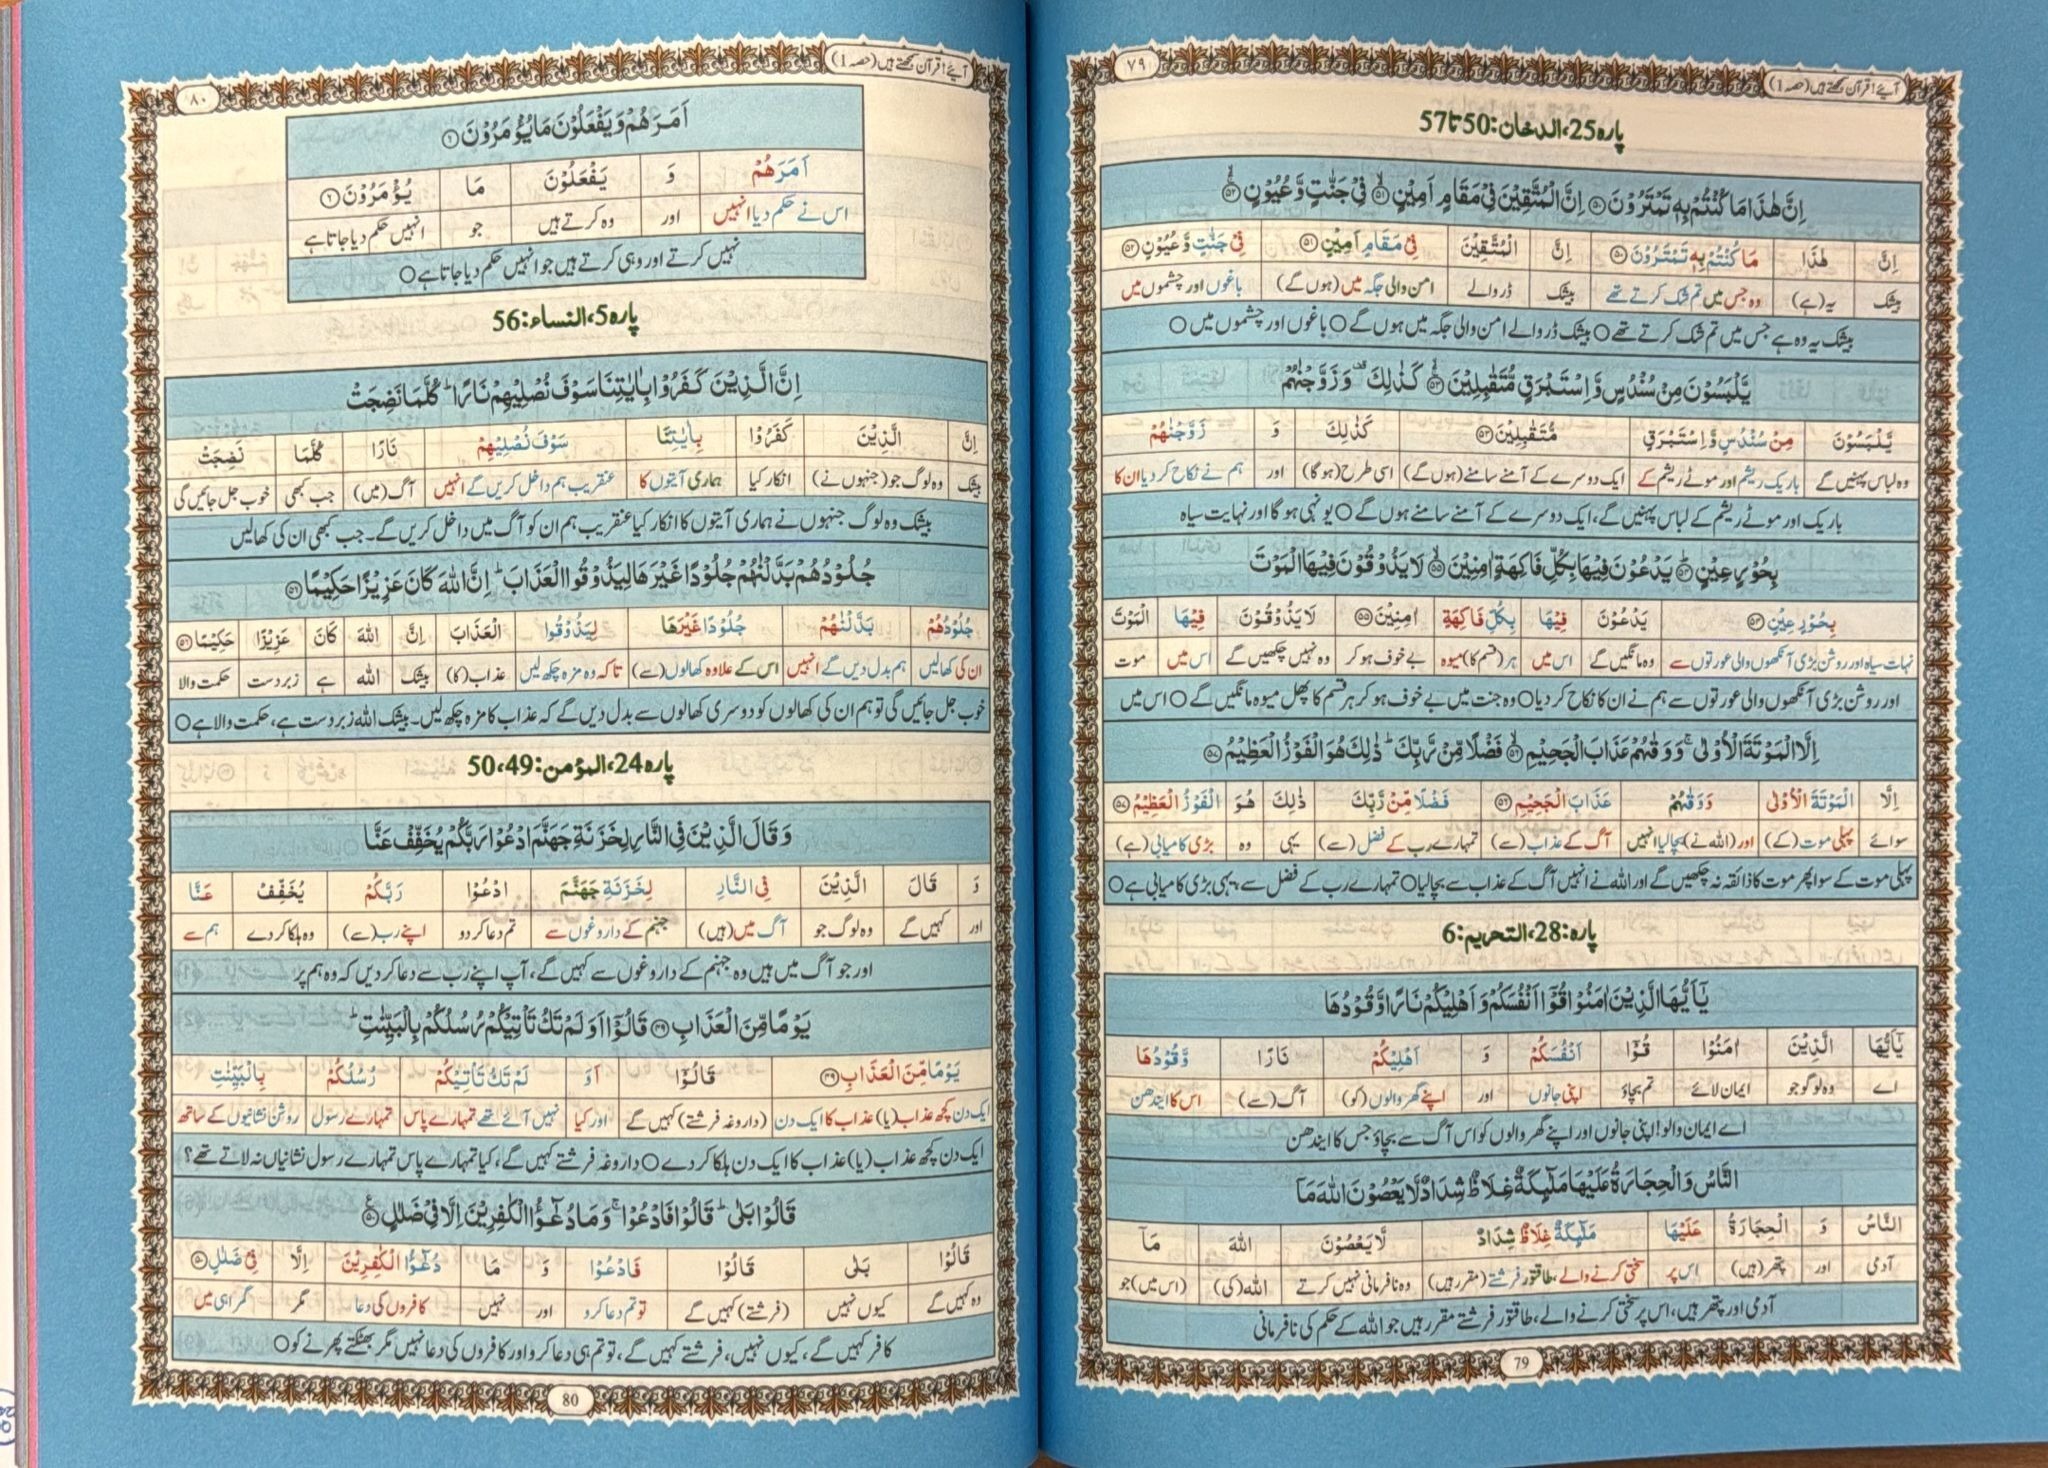 آیئے! قرآن سمجھتے ہیں (حصہ 1)
۷۹
پارہ 25،الدخان:50 تا 57
اِنَّ هٰذَا مَا كُنْتُمْ بِهٖ تَمْتَرُوْنَ ۵۰ اِنَّ الْمُتَّقِيْنَ فِيْ مَقَامٍ اَمِيْنٍ ۵۱ فِيْ جَنّٰتٍ وَّ عُيُوْنٍ ۵۲
اِنَّ هٰذَا مَا كُنْتُمْ بِهٖ تَمْتَرُوْنَ ۵۰ اِنَّ الْمُتَّقِيْنَ فِيْ مَقَامٍ اَمِيْنٍ ۵۱ فِيْ جَنّٰتٍ وَّ عُيُوْنٍ ۵۲
بیشک یہ (ہے) وہ جس میں تم شک کرتے تھے بیشک ڈر والے امن والی جگہ میں (ہوں گے) باغوں اور چشموں میں
بیشک یہ وہ ہے جس میں تم شک کرتے تھے ○ بیشک ڈر والے امن والی جگہ میں ہوں گے ○ باغوں اور چشموں میں ○
يَّلْبَسُوْنَ مِنْ سُنْدُسٍ وَّ اِسْتَبْرَقٍ مُّتَقٰبِلِيْنَ ۵۳ كَذٰلِكَ وَ زَوَّجْنٰهُمْ
يَّلْبَسُوْنَ مِنْ سُنْدُسٍ وَّ اِسْتَبْرَقٍ مُّتَقٰبِلِيْنَ ۵۳ كَذٰلِكَ وَ زَوَّجْنٰهُمْ
وہ لباس پہنیں گے باریک ریشم اور موٹے ریشم کے ایک دوسرے کے آمنے سامنے (ہوں گے) اسی طرح (ہو گا) اور ہم نے نکاح کر دیا ان کا
باریک اور موٹے ریشم کے لباس پہنیں گے، ایک دوسرے کے آمنے سامنے ہوں گے ○ یونہی ہو گا اور نہایت سیاہ
بِحُوْرٍ عِيْنٍ ۵۴ يَدْعُوْنَ فِيْهَا بِكُلِّ فَاكِهَةٍ اٰمِنِيْنَ ۵۵ لَا يَذُوْقُوْنَ فِيْهَا الْمَوْتَ
بِحُوْرٍ عِيْنٍ ۵۴ يَدْعُوْنَ فِيْهَا بِكُلِّ فَاكِهَةٍ اٰمِنِيْنَ ۵۵ لَا يَذُوْقُوْنَ فِيْهَا الْمَوْتَ
نہات سیاہ اور روشن بڑی آنکھوں والی عورتوں سے وہ مانگیں گے اس میں ہر (قسم کا) میوہ بے خوف ہو کر وہ نہیں چکھیں گے اس میں موت
اور روشن بڑی آنکھوں والی عورتوں سے ہم نے ان کا نکاح کر دیا ○ وہ جنت میں بے خوف ہو کر ہر قسم کا پھل میوہ مانگیں گے ○ اس میں
اِلَّا الْمَوْتَةَ الْاُوْلٰى وَ وَقٰىهُمْ عَذَابَ الْجَحِيْمِ ۵۶ فَضْلًا مِّنْ رَّبِّكَ ذٰلِكَ هُوَ الْفَوْزُ الْعَظِيْمُ ۵۷
اِلَّا الْمَوْتَةَ الْاُوْلٰى وَ وَقٰىهُمْ عَذَابَ الْجَحِيْمِ ۵۶ فَضْلًا مِّنْ رَّبِّكَ ذٰلِكَ هُوَ الْفَوْزُ الْعَظِيْمُ ۵۷
سوائے پہلی موت (کے) اور (اللہ نے) بچا لیا انہیں آگ کے عذاب (سے) تمہارے رب کے فضل (سے) یہی وہ بڑی کامیابی (ہے)
پہلی موت کے سوا پھر موت کا ذائقہ نہ چکھیں گے اور اللہ نے انہیں آگ کے عذاب سے بچا لیا ○ تمہارے رب کے فضل سے، یہی بڑی کامیابی ہے ○
پارہ:28،التحریم:6
يٰۤاَيُّهَا الَّذِيْنَ اٰمَنُوْا قُوْۤا اَنْفُسَكُمْ وَ اَهْلِيْكُمْ نَارًا وَّقُوْدُهَا
يٰۤاَيُّهَا الَّذِيْنَ اٰمَنُوْا قُوْۤا اَنْفُسَكُمْ وَ اَهْلِيْكُمْ نَارًا وَّقُوْدُهَا
اے وہ لوگو جو ایمان لائے تم بچاؤ اپنی جانوں اور اپنے گھر والوں (کو) آگ (سے) اس کا ایندھن
اے ایمان والو! اپنی جانوں اور اپنے گھر والوں کو اس آگ سے بچاؤ جس کا ایندھن
النَّاسُ وَ الْحِجَارَةُ عَلَيْهَا مَلٰٓىِٕكَةٌ غِلَاظٌ شِدَادٌ لَّا يَعْصُوْنَ اللّٰهَ مَاۤ
النَّاسُ وَ الْحِجَارَةُ عَلَيْهَا مَلٰٓىِٕكَةٌ غِلَاظٌ شِدَادٌ لَّا يَعْصُوْنَ اللّٰهَ مَاۤ
آدمی اور پتھر (ہیں) اس پر سختی کرنے والے، طاقتور فرشتے (مقرر ہیں) وہ نافرمانی نہیں کرتے اللہ (کی) (اس میں) جو
آدمی اور پتھر ہیں، اس پر سختی کرنے والے، طاقتور فرشتے مقرر ہیں جو اللہ کے حکم کی نافرمانی
79
آیئے! قرآن سمجھتے ہیں (حصہ 1)
۸۰
اَمَرَهُمْ وَ يَفْعَلُوْنَ مَا يُؤْمَرُوْنَ ۶
اَمَرَهُمْ وَ يَفْعَلُوْنَ مَا يُؤْمَرُوْنَ ۶
اس نے حکم دیا انہیں اور وہ کرتے ہیں جو انہیں حکم دیا جاتا ہے
نہیں کرتے اور وہی کرتے ہیں جو انہیں حکم دیا جاتا ہے ○
پارہ 5،النساء:56
اِنَّ الَّذِيْنَ كَفَرُوْا بِاٰيٰتِنَا سَوْفَ نُصْلِيْهِمْ نَارًا كُلَّمَا نَضِجَتْ
اِنَّ الَّذِيْنَ كَفَرُوْا بِاٰيٰتِنَا سَوْفَ نُصْلِيْهِمْ نَارًا كُلَّمَا نَضِجَتْ
بیشک وہ لوگ جو (جنہوں نے) انکار کیا ہماری آیتوں کا عنقریب ہم داخل کریں گے انہیں آگ (میں) جب کبھی خوب جل جائیں گی
بیشک وہ لوگ جنہوں نے ہماری آیتوں کا انکار کیا عنقریب ہم ان کو آگ میں داخل کریں گے۔ جب کبھی ان کی کھالیں
جُلُوْدُهُمْ بَدَّلْنٰهُمْ جُلُوْدًا غَيْرَهَا لِيَذُوْقُوا الْعَذَابَ اِنَّ اللّٰهَ كَانَ عَزِيْزًا حَكِيْمًا ۵۶
جُلُوْدُهُمْ بَدَّلْنٰهُمْ جُلُوْدًا غَيْرَهَا لِيَذُوْقُوا الْعَذَابَ اِنَّ اللّٰهَ كَانَ عَزِيْزًا حَكِيْمًا ۵۶
ان کی کھالیں ہم بدل دیں گے انہیں اس کے علاوہ کھالوں (سے) تاکہ وہ مزہ چکھ لیں عذاب (کا) بیشک اللہ ہے زبردست حکمت والا
خوب جل جائیں گی تو ہم ان کی کھالوں کو دوسری کھالوں سے بدل دیں گے کہ عذاب کا مزہ چکھ لیں۔ بیشک اللہ زبردست ہے، حکمت والا ہے ○
پارہ 24،المؤمن:50،49
وَ قَالَ الَّذِيْنَ فِي النَّارِ لِخَزَنَةِ جَهَنَّمَ ادْعُوْا رَبَّكُمْ يُخَفِّفْ عَنَّا
وَ قَالَ الَّذِيْنَ فِي النَّارِ لِخَزَنَةِ جَهَنَّمَ ادْعُوْا رَبَّكُمْ يُخَفِّفْ عَنَّا
اور کہیں گے وہ لوگ جو آگ میں (ہیں) جہنم کے داروغوں سے تم دعا کر دو اپنے رب (سے) وہ ہلکا کر دے ہم سے
اور جو آگ میں ہیں وہ جہنم کے داروغوں سے کہیں گے، آپ اپنے رب سے دعا کر دیں کہ وہ ہم پر
يَوْمًا مِّنَ الْعَذَابِ ۴۹ قَالُوْۤا اَوَ لَمْ تَكُ تَاْتِيْكُمْ رُسُلُكُمْ بِالْبَيِّنٰتِ
يَوْمًا مِّنَ الْعَذَابِ ۴۹ قَالُوْۤا اَوَ لَمْ تَكُ تَاْتِيْكُمْ رُسُلُكُمْ بِالْبَيِّنٰتِ
ایک دن کچھ عذاب (یا) عذاب کا ایک دن (داروغہ فرشتے) کہیں گے اور کیا نہیں آئے تھے تمہارے پاس تمہارے رسول روشن نشانیوں کے ساتھ
ایک دن کچھ عذاب (یا) عذاب کا ایک دن ہلکا کر دے ○ داروغہ فرشتے کہیں گے، کیا تمہارے پاس تمہارے رسول نشانیاں نہ لاتے تھے؟
قَالُوْا بَلٰى قَالُوْا فَادْعُوْا وَ مَا دُعٰٓؤُا الْكٰفِرِيْنَ اِلَّا فِيْ ضَلٰلٍ ۵۰
قَالُوْا بَلٰى قَالُوْا فَادْعُوْا وَ مَا دُعٰٓؤُا الْكٰفِرِيْنَ اِلَّا فِيْ ضَلٰلٍ ۵۰
وہ کہیں گے کیوں نہیں (فرشتے) کہیں گے تو تم دعا کرو اور نہیں کافروں کی دعا مگر گمراہی میں
کافر کہیں گے، کیوں نہیں، فرشتے کہیں گے، تو تم ہی دعا کرو اور کافروں کی دعا نہیں مگر بھٹکتے پھرنے کو ○
80